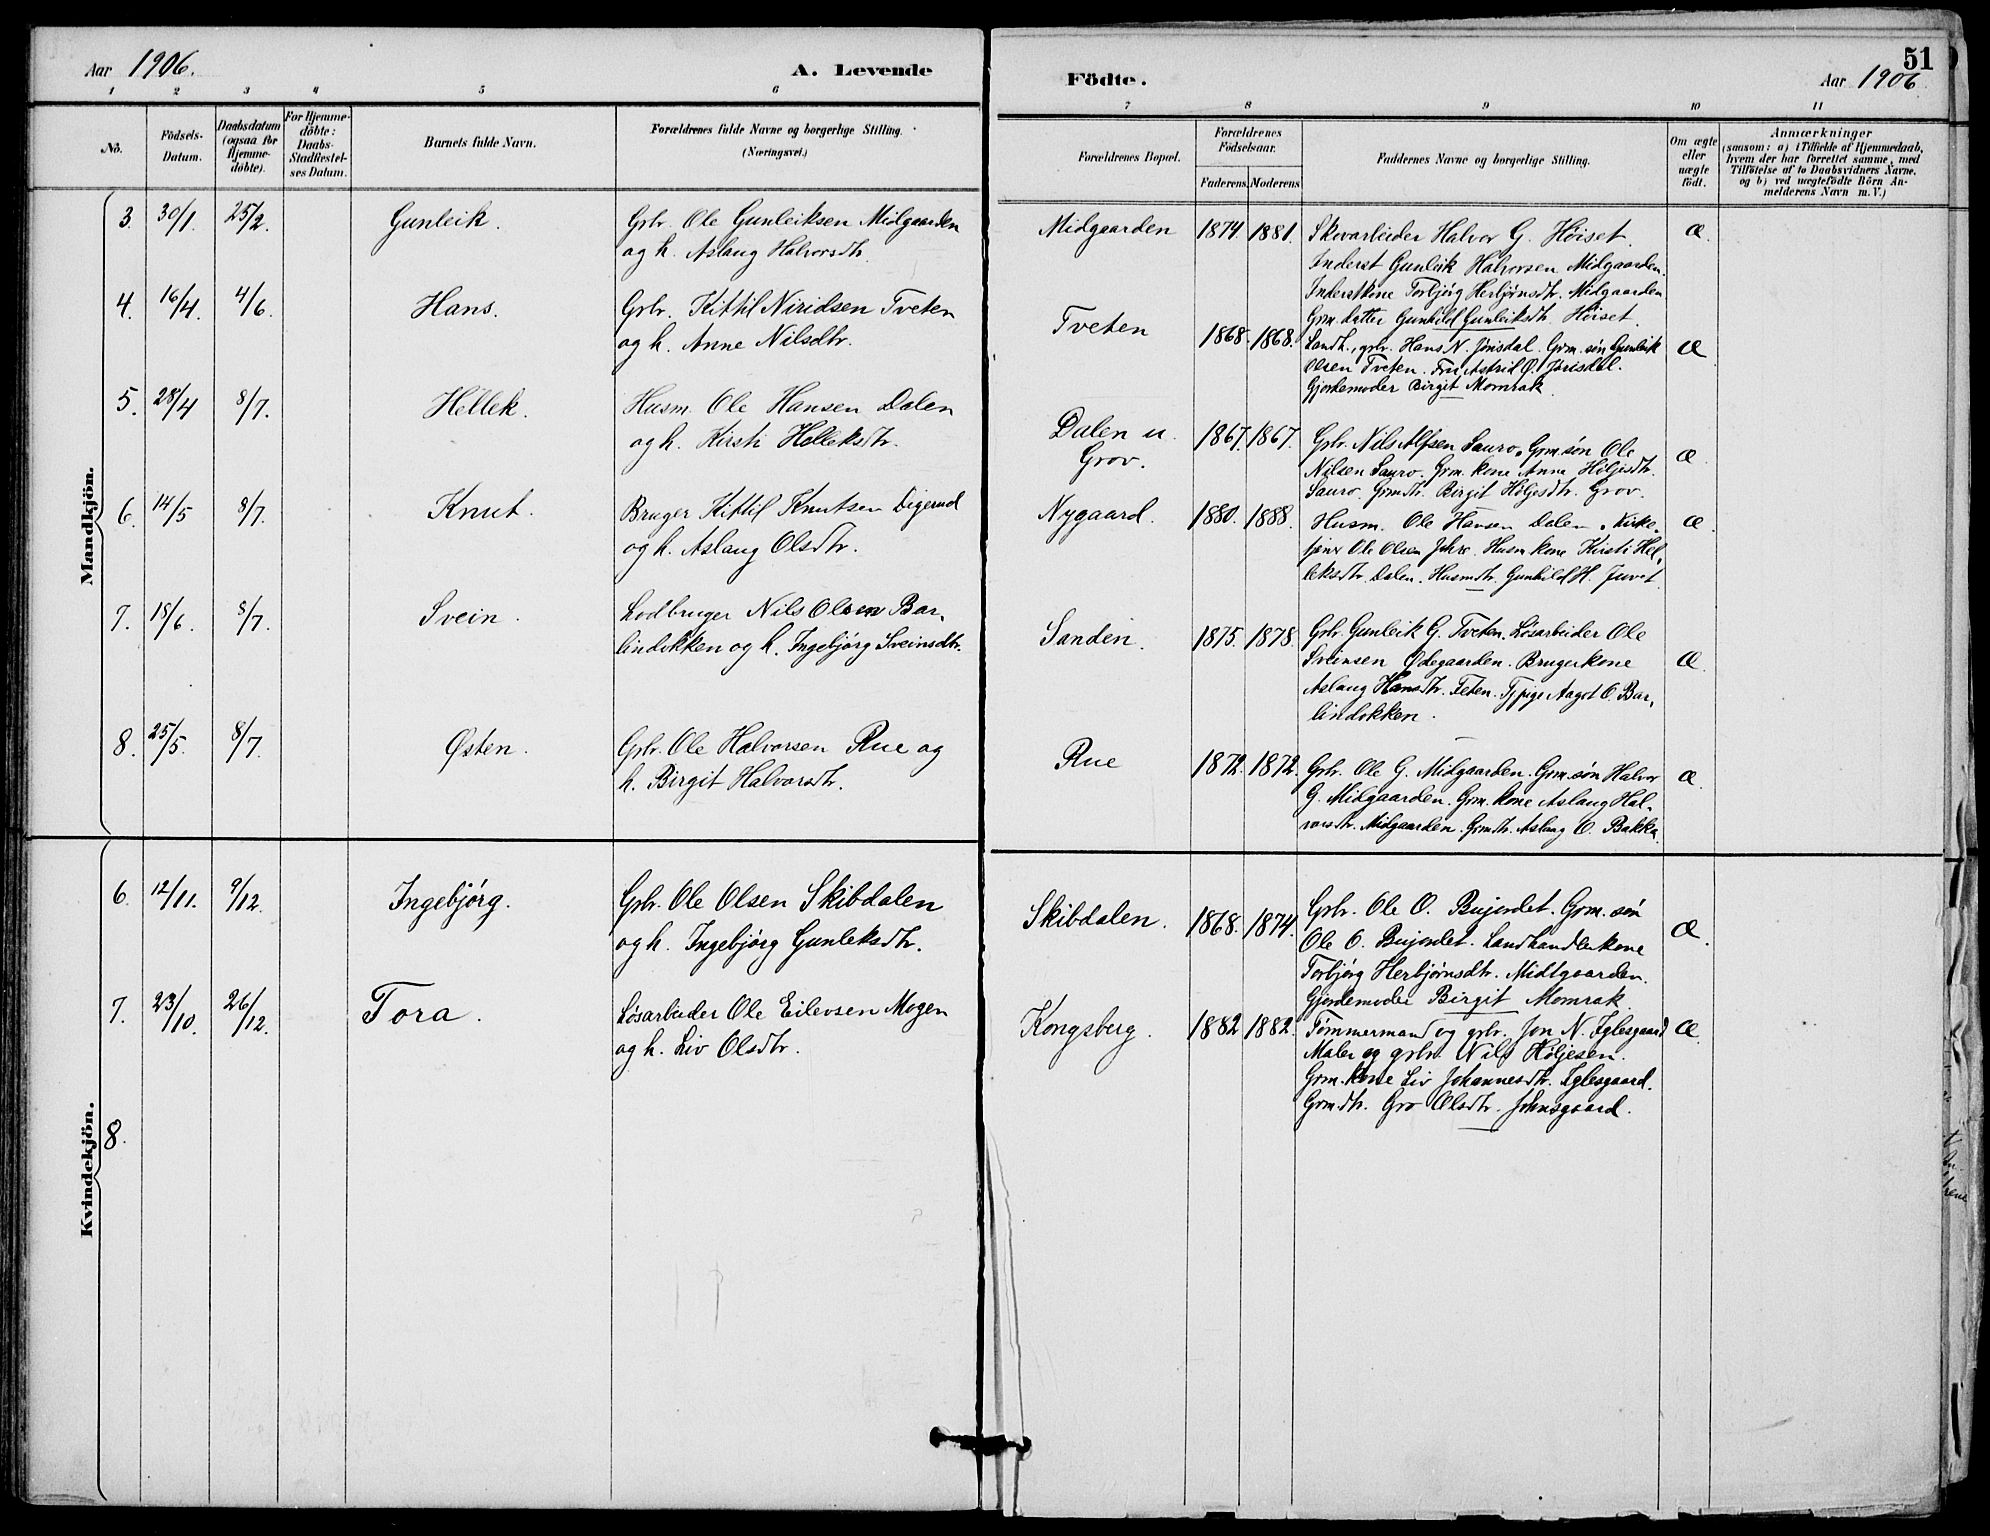 Aar 1906.
A. Levende
1 2 3 4 5 6
No.
Födsels-
Datum.
Daabsdatum
(ogsaa for
Hjemme-
döbte).
For Hjemme-
döbte:
Daabs-
Stadfæstel-
ses Datum.
Barnets fulde Navn.
Forældrenes fulde Navne og borgerlige Stilling.
(Næringsvei.)
Mandkjön.
3. 30/1. 25/2. Gunleik. Grbr. Ole Gunleiksen Midgaarden
og h. Aslaug Halvorsdtr.
4. 16/4. 4/6. Hans. Grbr. Kittil Niridsen Tveten
og h. Anne Nilsdtr.
5. 28/4 8/7. Hellek. Husm. Ole Hansen Dalen
og h. Kirsti Helleksdtr.
6. 14/5 8/7. Knut. Bruger Kittil Knutsen Digerud
og h. Aslaug Olsdtr.
7. 18/6. 8/7. Svein. Lodbruger Nils Olsen Bar-
lindokken og h. Ingebjörg Sveinsdtr.
8. 25/5. 8/7. Østen. Grbr. Ole Halvorsen Rue og
h. Birgit Halvorsdtr.
Kvindekjön.
6. 12/11. 9/12. Ingebjörg. Grbr. Ole Olsen Skibdalen
og h. Ingebjörg Gunleksdtr.
7. 23/10. 26/12. Tora. Løsarbeider Ole Eilevsen Mogen
og h. Liv Olsdtr.
8.
51
Födte.
Aar 1906
7 8 9 10 11
Forældrenes Bopæl.
Forældrenes
Födselsaar.
Faderens. Moderens
Faddernes Navne og borgerlige Stilling.
Om ægte
eller
uægte
födt.
Anmærkninger
(saasom: a) i Tilfælde af Hjemmedaab,
hvem der har forrettet samme, med
Tilföielse af to Daabsvidners Navne,
og b) ved uægtefödte Börn An-
melderens Navn m. V.)
Midgaarden 1874. 1881. Skovarbeider Halvor G. Höiset. Æ.
Inderst Gunleik Halvorsen Midgaarden.
Inderstkone Torbjörg Herbjörnsdtr. Midgaarden
Grm. datter Gunhild Gunleiksdtr. Höiset.
Tveten 1868. 1868. Landh., grbr. Hans N. Jörisdal. Grm. sön Gunleik Æ
Olsen Tveten. Fru Astrid O. Jörisdal.
Gjordemoder Birgit Momrak.
Dalen u.
Grov. 1867. 1867. Grbr. Nils Alfsen Sauro. Grm. sön Ole Æ.
Nilsen Sauro. Grm. kone Anne Höljesdtr.
Sauro. Grmdtr. Birgit Höljesdtr. Grov.
Nygaard. 1880. 1888. Husm. Ole Hansen Dalen. Kirke- Æ.
tjener Ole Olsen Juhre. Husm kone Kirsti Hel-
leksdtr. Dalen. Husmdtr. Gunhild H. Juvet
Sanden. 1875. 1878. Grbr. Gunleik G. Tveten. Løsarbeider Ole Æ.
Sveinsen Ødegaarden. Brugerkone
Aslaug Hansdtr. Teten. Tj.pige Aagot O. Bar-
lindokken.
Rue 1872. 1872. Grbr. Ole G. Midgaarden. Grm. sön Halvor Æ.
G. Midgaarden. Grm. kone Aslaug Hal-
vorsdtr. Midgaarden. Grmdtr. Aslaug O. Bakka.
Skibdalen. 1868. 1874. Grbr. Ole O. Bujordet. Grm. sön Æ.
Ole O. Bujordet. Landhandlerkone
Torbjörg Herbjörnsdtr. Midtgaarden.
Gjordemoder Birgit Momrak.
Kongsberg. 1882. 1882. Tömmermand og grbr. Jon N. Iglesgaard Æ.
Maler og grbr. Nils Höljesen.
Grm. kone Liv Johannesdtr. Iglesgaard.
Grmdtr. Gro Olsdtr. Johnsgaard.